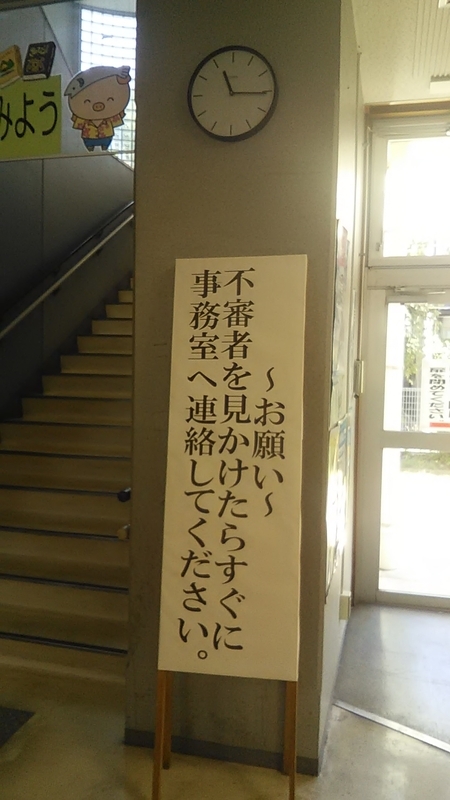 〜お願い〜
不審者を見かけたらすぐに
事務室へ連絡してください。
みよう